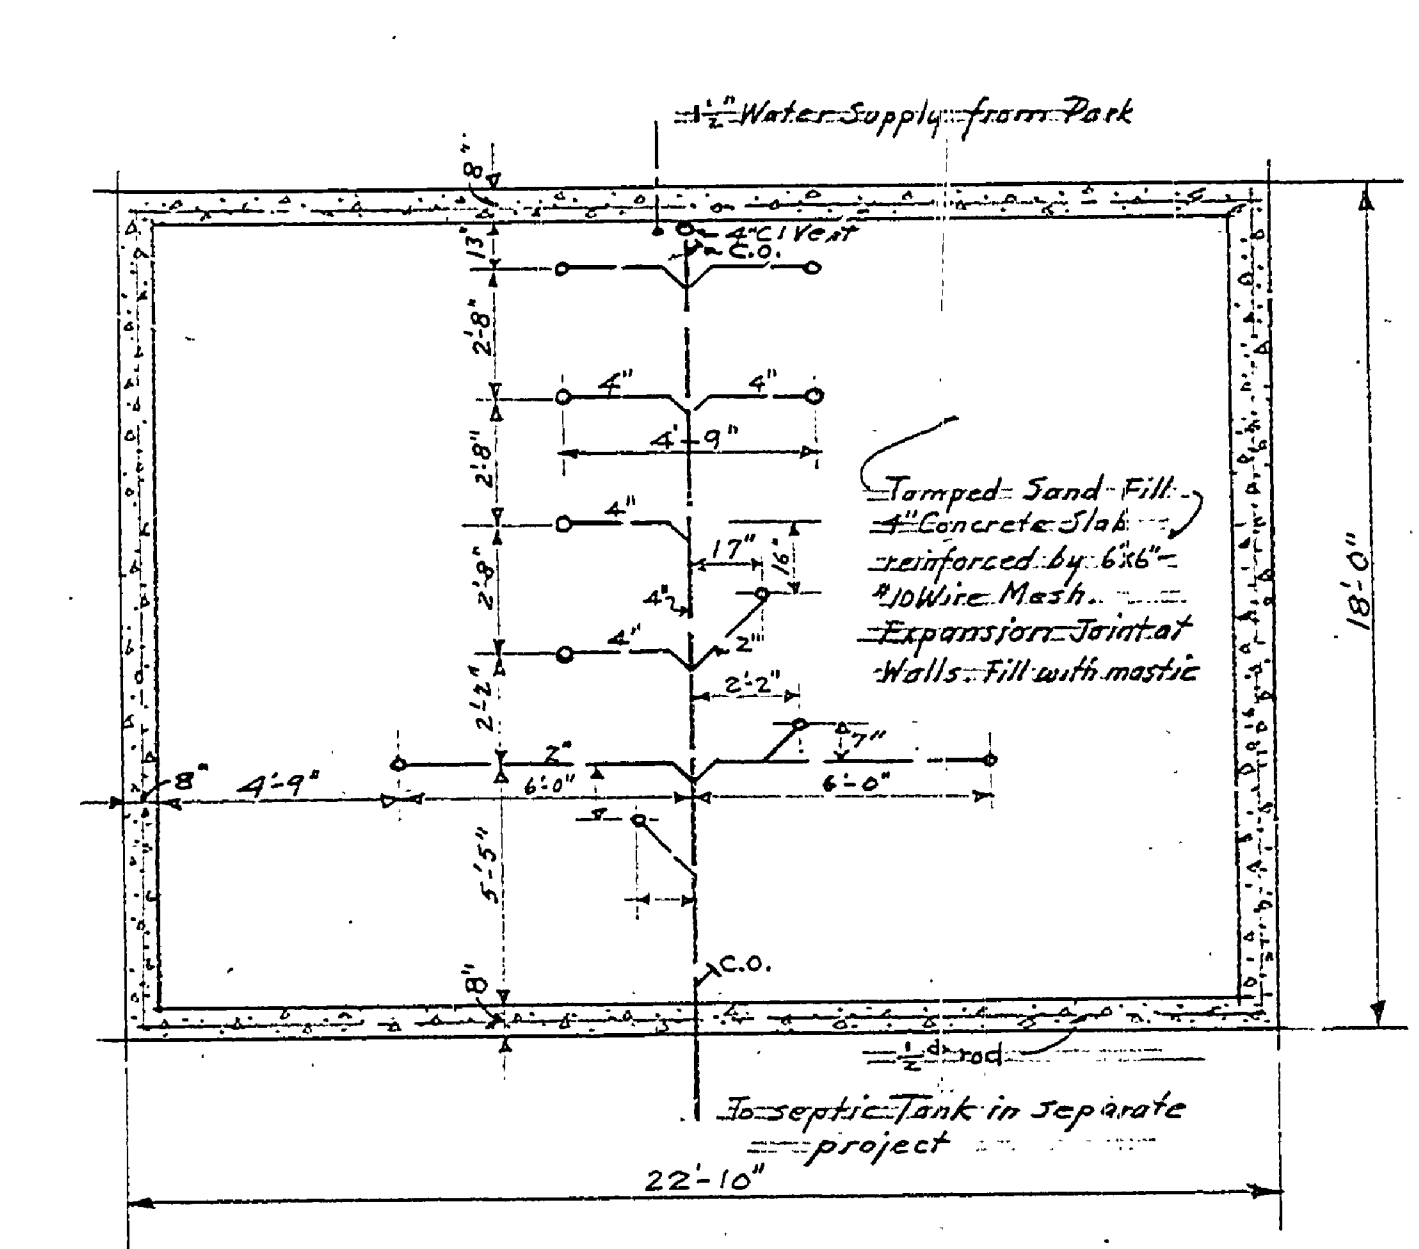 1½" Water Supply from Park
8"
13"
4" C I Vent
C.O.
2'-8"
4" 4"
4'-9"
2'-8"
Tamped Sand Fill
4" Concrete Slab
reinforced by 6"x6"-
#10 Wire Mesh.
Expansion Joint at
Walls. Fill with mastic
4"
17"
16"
2'-8"
4"
4"
2"
18'-0"
2'-2"
2'-2"
7"
2"
8"
4'-9"
6'-0"
6'-0"
5'-5"
C.O.
8"
½" rod
To septic Tank in separate
project
22'-10"